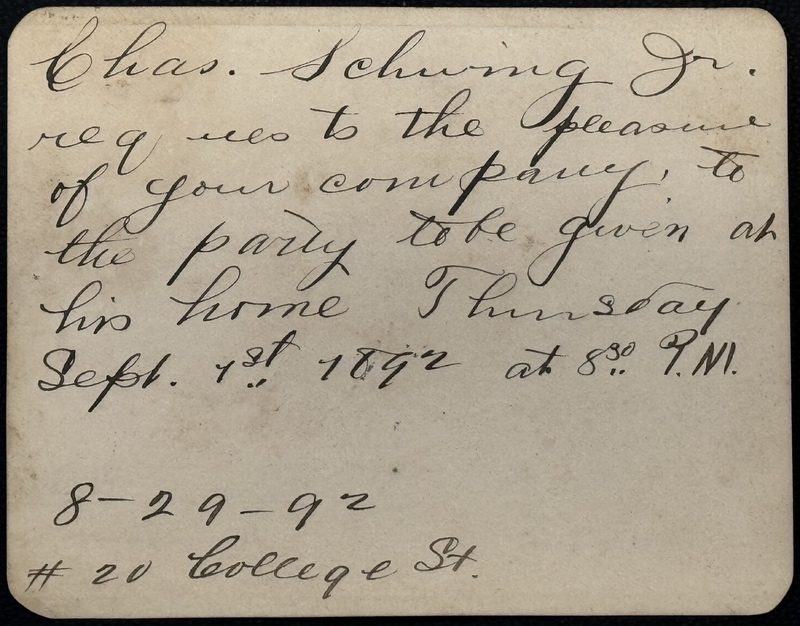 Chas. Schwing Jr.
req ues to the pleasure
of your company, to
the party tobe given at
his home Thursday
Sept. 1st 1892 at 8³⁰ P.M.
8-29-92
# 20 College St.